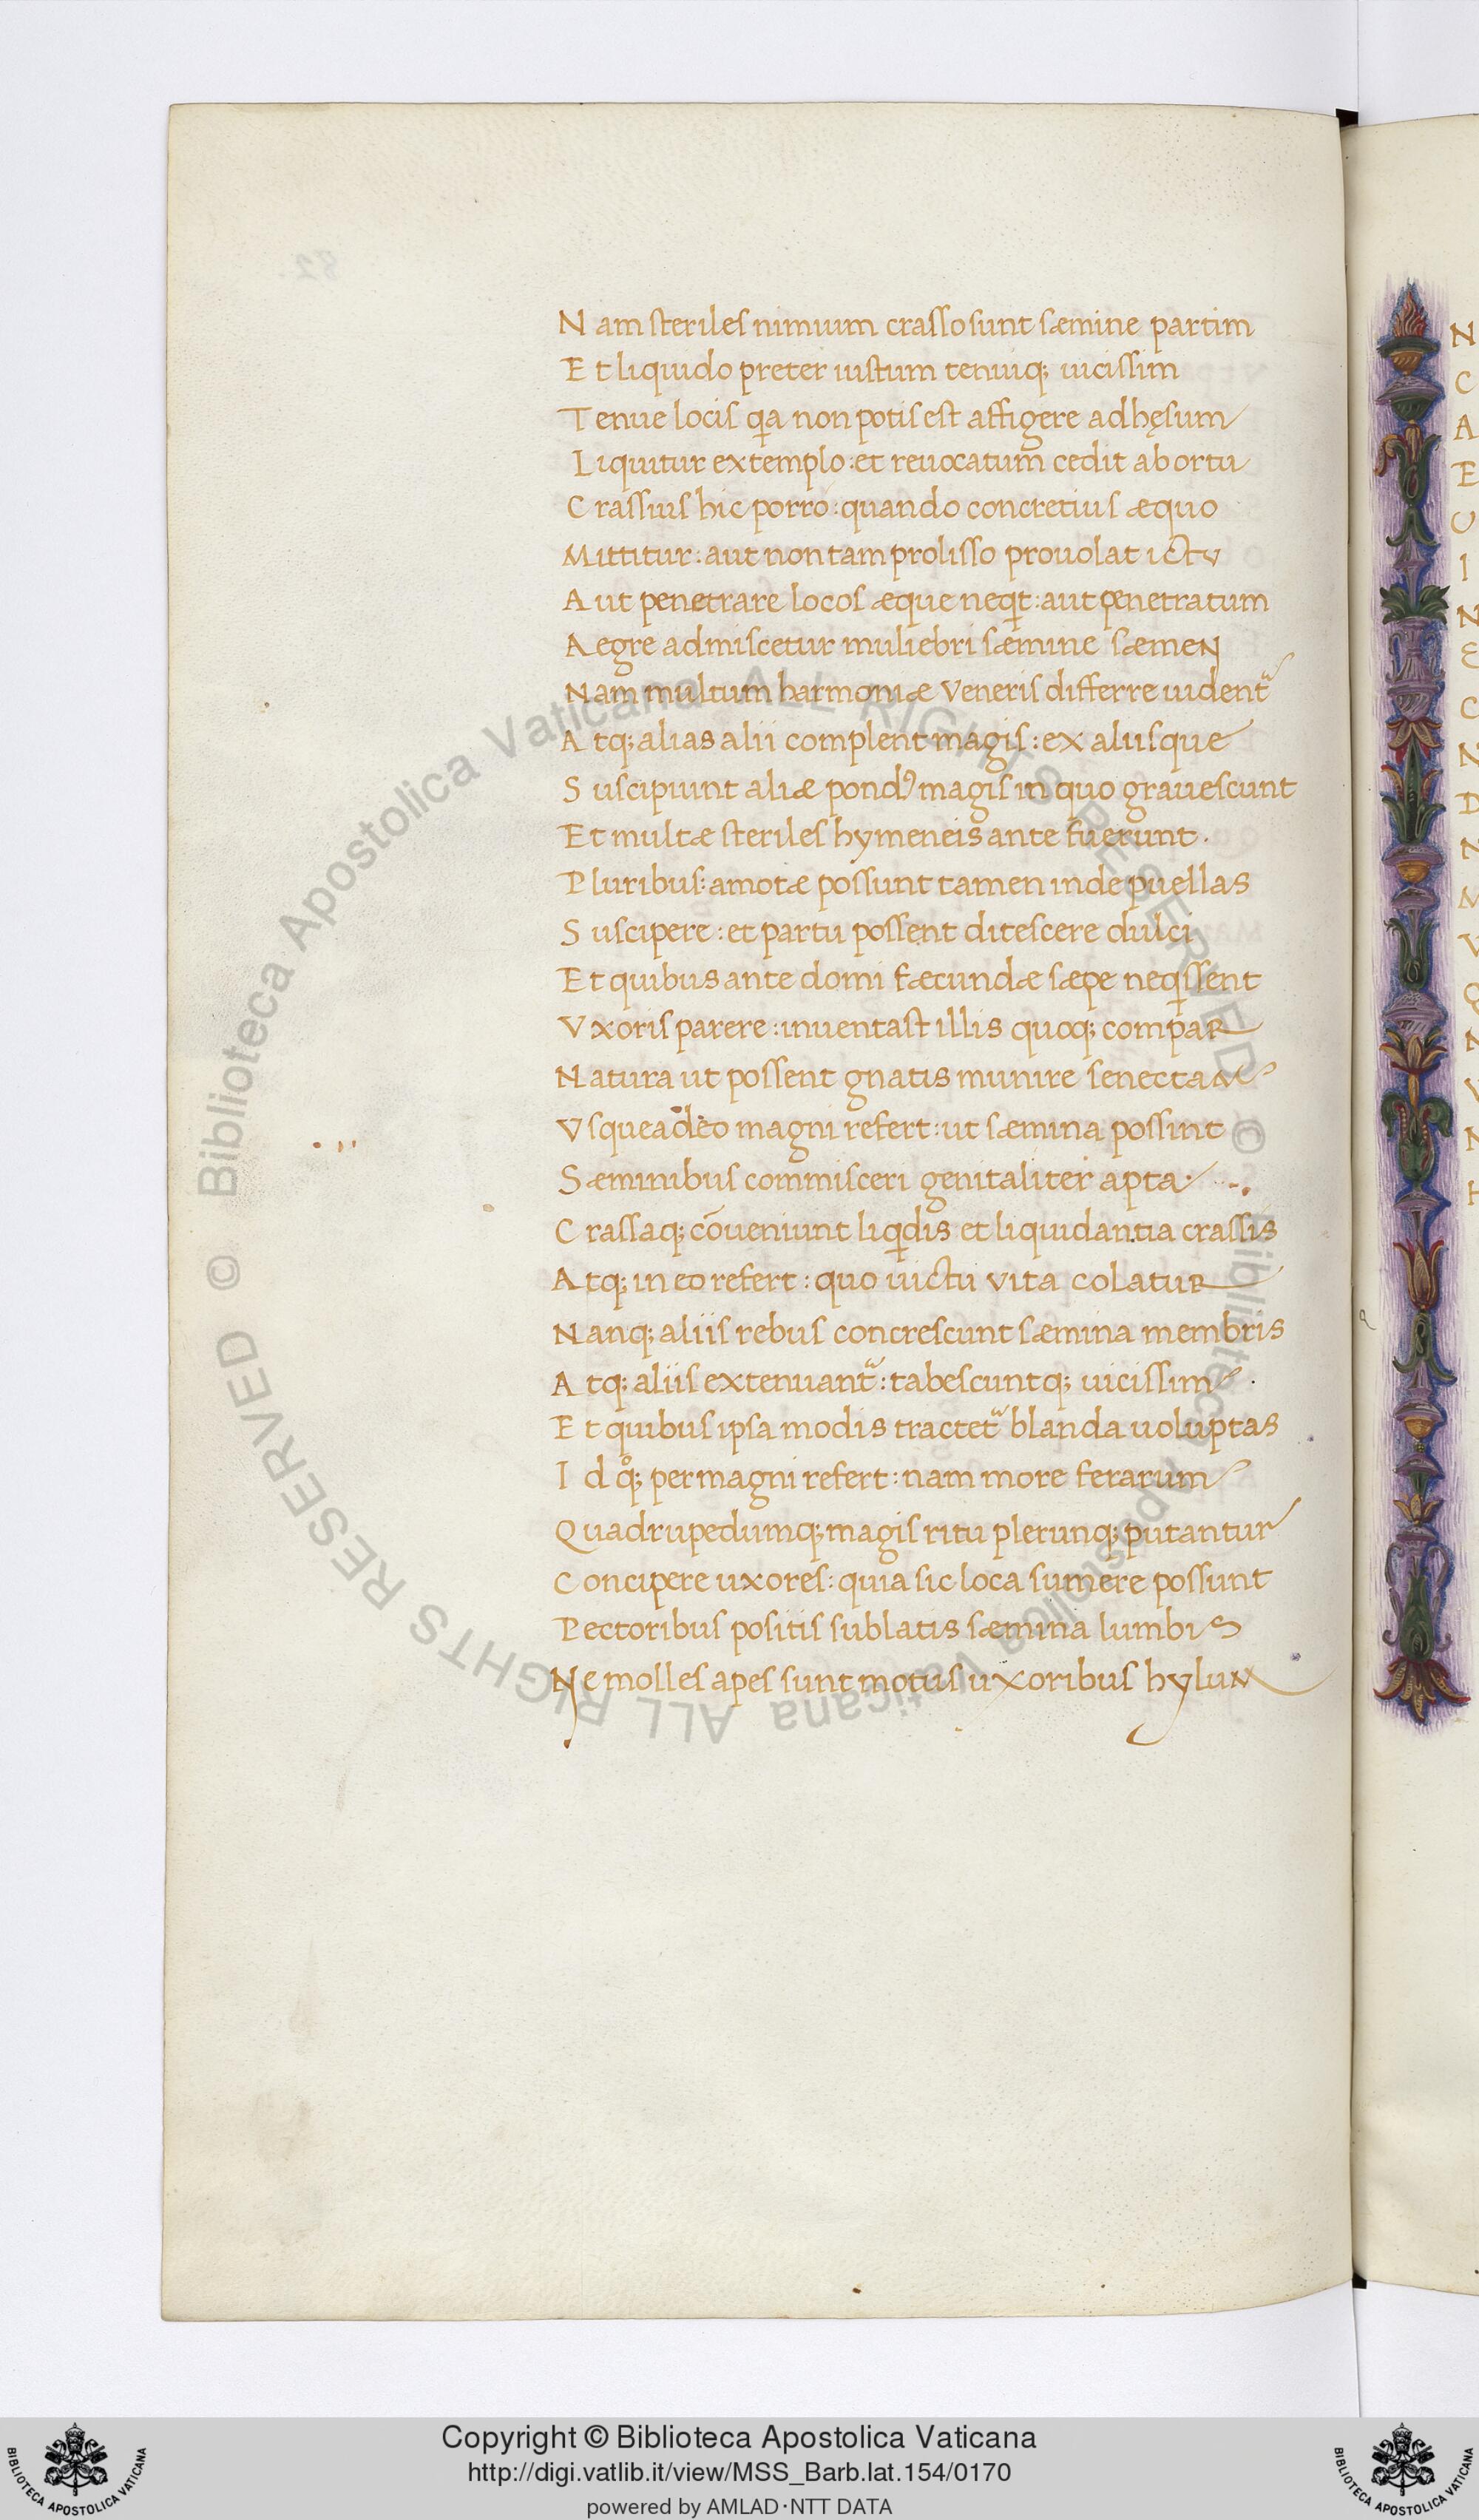 Nam steriles nimium crasso sunt sæmine partim
Et liquido preter iustum tenuiq; uicissim
Tenue locis qa non potis est affigere adhęsum
Liquitur extemplo: et reuocatum cedit abortu
Crassius hic porro: quando concretius æquo
Mittitur: aut non tam prolisso prouolat ictu
Aut penetrare locos æque neqt: aut penetratum
Aegre admiscetur muliebri sæmine sæmen
Nam multum harmoniæ Veneris differre uident᷑
Atq; alias alii complent magis: ex aliisque
Suscipiunt aliæ pondꝰ magis in quo grauescunt
Et multæ steriles hymeneis ante fuerunt.
Pluribus: amotæ possunt tamen inde puellas
Suscipere: et partu possent ditescere dulci
Et quibus ante domi fæcundæ sæpe neqissent
Vxoris parere: inuentast illis quoq; compar
Natura ut possent gnatis munire senectam
Vsque adeo magni refert: ut sæmina possint
Sæminibus commisceri genitaliter apta.
Crassaq; cōueniunt liqdis et liquidantia crassis
Atq; in eo refert: quo uictu vita colatur
Nanq; aliis rebus concrescunt sæmina membris
Atq; aliis extenuant᷑: tabescuntq; uicissim.
Et quibus ipsa modis tractet᷑ blanda uoluptas
Id qͦ; permagni refert: nam more ferarum
Quadrupedumq; magis ritu plerunq; putantur
Concipere uxores: quia sic loca sumere possunt
Pectoribus positis sublatis sæmina lumbis
Ne molles apes sunt motus uxoribus hylum
N
C
A
E
U
I
N
E
C
N
D
N
M
V
Q
N
V
N
© Biblioteca Apostolica Vaticana ALL RIGHTS RESERVED © Biblioteca Apostolica Vaticana ALL RIGHTS RESERVED
BIBLIOTECA APOSTOLICA VATICANA
Copyright © Biblioteca Apostolica Vaticana
http://digi.vatlib.it/view/MSS_Barb.lat.154/0170
powered by AMLAD·NTT DATA
BIBLIOTECA APOSTOLICA VATICANA